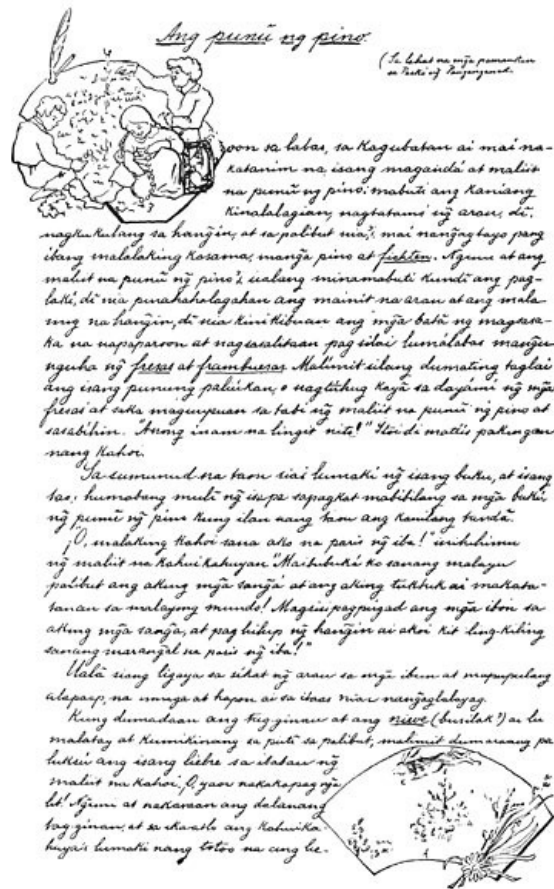 Ang punû ng pino.
(Sa lahat na mga pamankin
sa Paskó ng Pañginginoon.
oon sa labas, sa kagubatan ai mai na-
katanim na isang magandá at maliit
na punû ng pino: mabuti ang kaniang
kinalalagian, nagtatamó ng arau, di
nagkukulang sa hangin, at sa palibut nia'i, mai nangagtayo pang
ibang malalaking kasama, manga pino at fichten. Nguni at ang
maliit na punû ng pino'i, ualang minamabuti kundi ang pag-
laki, di nia pinahahalagahan ang mainit na arau at ang mala-
mig na hangin, di nia kinikibuan ang mga batá ng magsasa-
ka na napaparoon at nagsasalitaan pag silai lumalabas mangu-
nguha ng fresas at frambuesas. Malimit silang dumating taglai
ang isang punung palaiukan, o nagtuhug kayá sa dayami ng mga
fresas at saka maguupuan sa tabi ng maliit na punû ng pino at
sasabihin. "Anong inam na lingit nito!" Itoi di matiis pakingan
nang kahoi.
Sa sumunud na taon siai lumaki ng isang buku, at isang
tao; humabang muli ng isa pa sapagkat mabibilang sa mga bukú
ng punû ng pino kung ilan nang taon ang kanilang tandâ.
¡O, malaking kahoi sana ako na paris ng iba!" inihihimu
ng maliit na kahui kahuyan "Maibubuká ko sanang malayu
palibut ang aking mga sangá at ang aking tuktuk ai makata-
tanau sa malayong mundo! Magsisipagpugad ang mga ibon sa
aking mga sangá, at pag hihip ng hangin ai akoi kit ling-kiling
sanang marangal na paris ng iba!"
Ualâ siang ligaya sa sikat ng arau sa mga ibun at mapupulang
alapaap, na umaga at hapon ai sa itaas niar nangaglalayag.
Kung dumadaan ang tag-ginau at ang nieve (busilak?) ai ku
malatag at kumikinang sa puti sa palibut, malimit dumaraang pa
luksú ang isang liebre sa ibabau ng
maliit na kahoi, O, yaon nakakapag nge
lit! Nguni at nakaraan ang dalauang
tag-ginau, at sa ikaatlo ang kahuika
huya'i lumaki nang totoo na ang lie-